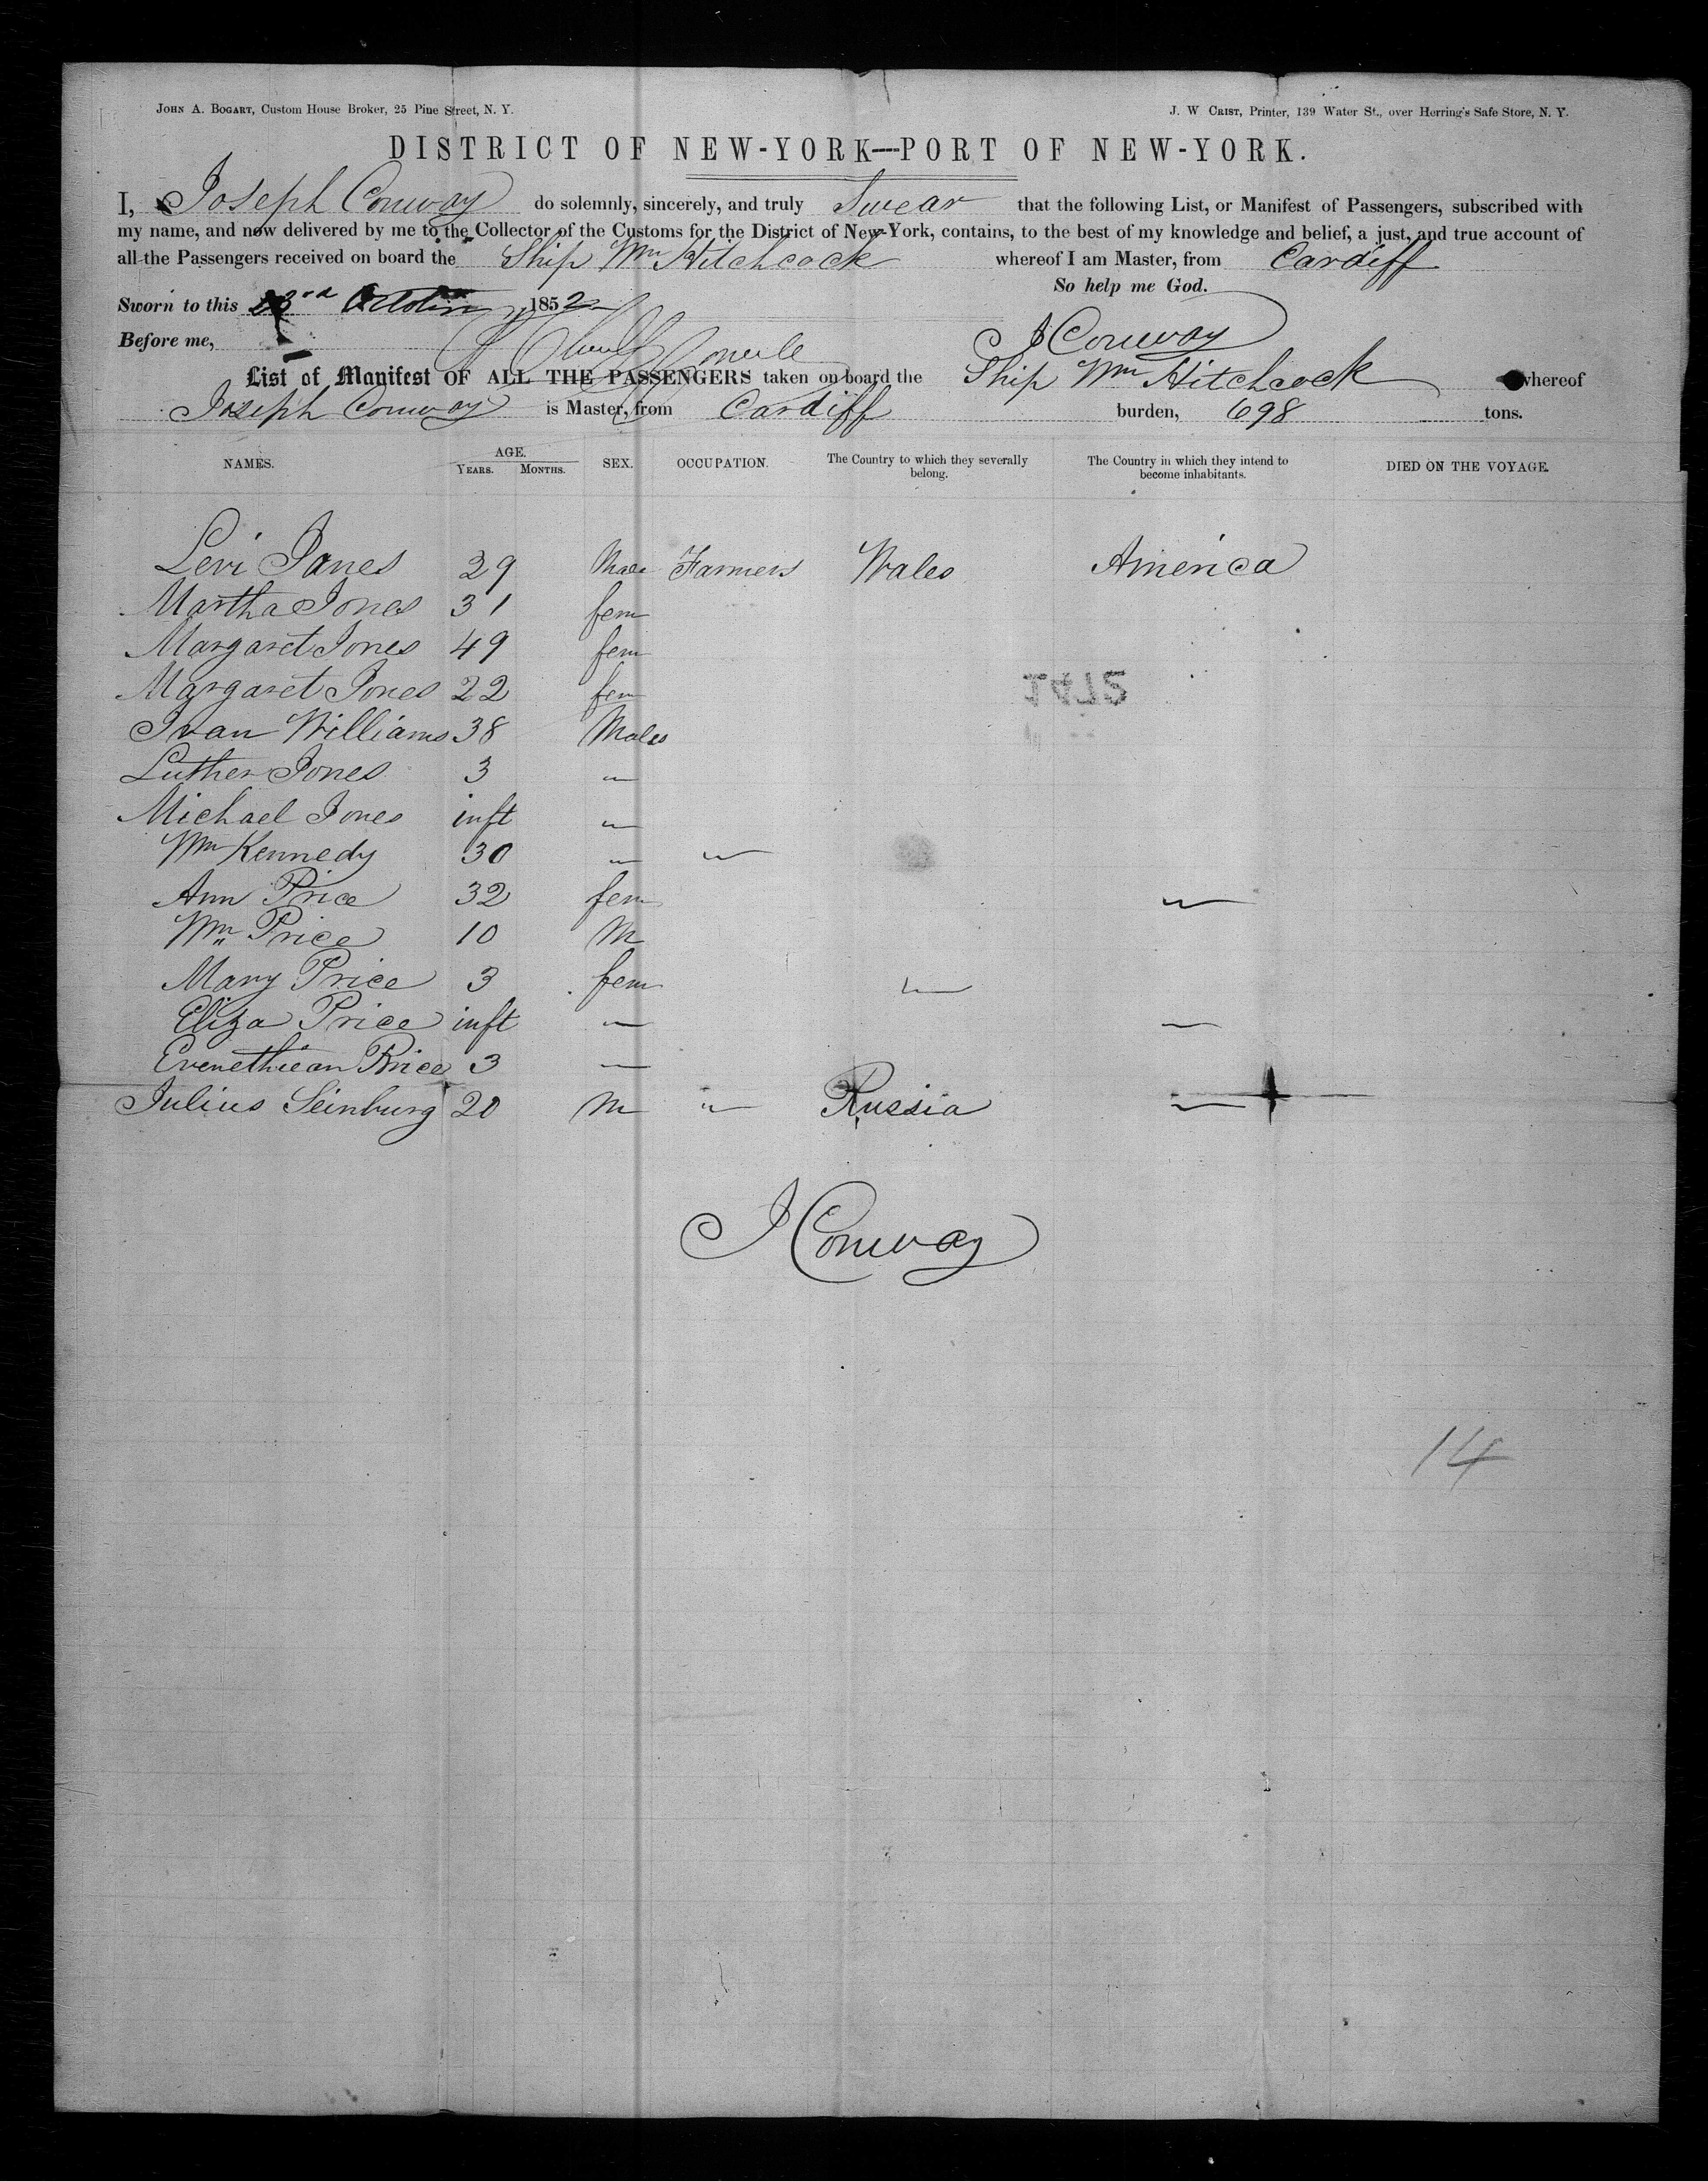 JOHN A. BOGART, Custom House Broker, 25 Pine Street, N. Y.
J. W CRIST, Printer, 139 Water St., over Herring's Safe Store, N. Y.
DISTRICT OF NEW-YORK—PORT OF NEW-YORK.
I, Joseph Conway do solemnly, sincerely, and truly Swear that the following List, or Manifest of Passengers, subscribed with
my name, and now delivered by me to the Collector of the Customs for the District of New-York, contains, to the best of my knowledge and belief, a just, and true account of
all the Passengers received on board the Ship Wm Hitchcock whereof I am Master, from Cardiff
So help me God.
Sworn to this 23rd October 1852
Before me,
J Conway
List of Manifest OF ALL THE PASSENGERS taken on board the Ship Wm Hitchcock whereof
Joseph Conway is Master, from Cardiff burden, 698 tons.
NAMES. AGE. YEARS. MONTHS. SEX. OCCUPATION. The Country to which they severally belong. The Country in which they intend to become inhabitants. DIED ON THE VOYAGE.
Levi Jones 29 Male Farmers Wales America
Martha Jones 31 fem
Margaret Jones 49 fem
Margaret Jones 22 fem
Ivan Williams 38 Males
Luther Jones 3 "
Michael Jones inft "
Wm Kennedy 30 " "
Ann Price 32 fem "
Wm Price 10 M
Mary Price 3 fem "
Eliza Price inft " "
Price 3 "
Julius Seinburg 20 M " Russia "
J Conway
14